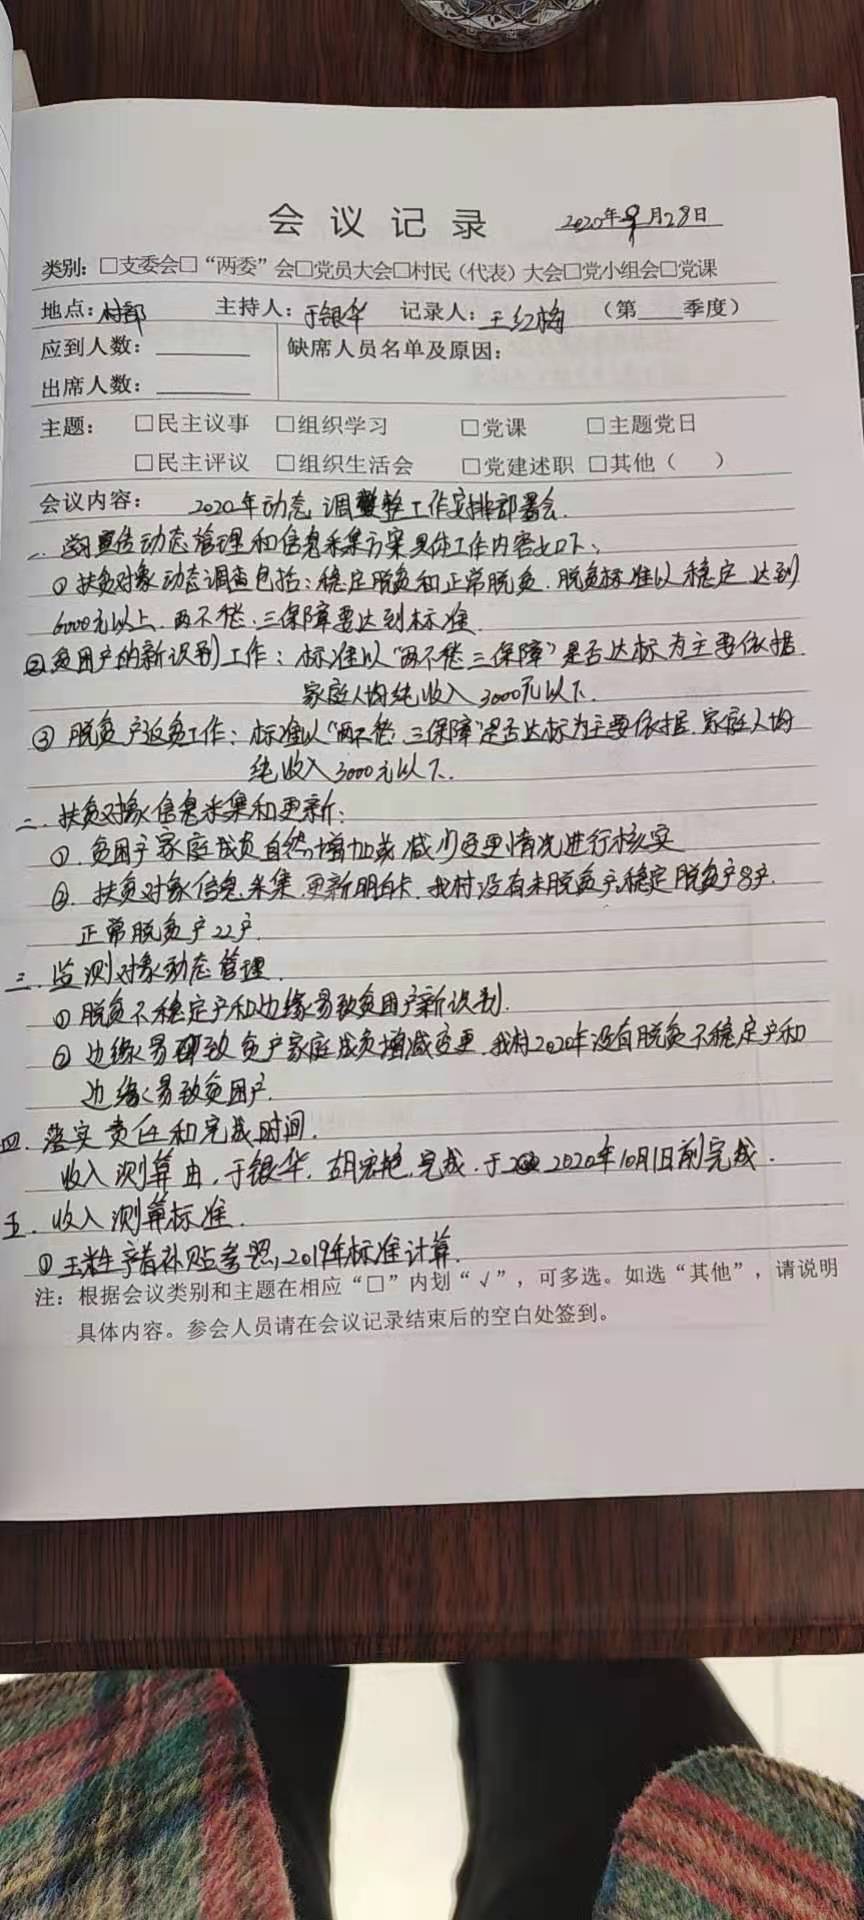 会议记录 2020年9月28日
类别：□支委会□“两委”会□党员大会□村民（代表）大会□党小组会□党课
地点：村部 主持人：于银华 记录人：王红梅 （第____季度）
应到人数：______ 缺席人员名单及原因：
出席人数：______
主题： □民主议事 □组织学习 □党课 □主题党日
□民主评议 □组织生活会 □党建述职 □其他（ ）
会议内容： 2020年动态调整工作安排部署会.
一. 宣传动态管理和信息采集方案具体工作内容如下：
① 扶贫对象动态调查包括：稳定脱贫和正常脱贫. 脱贫标准以稳定达到
6000元以上. 两不愁. 三保障要达到标准.
② 贫困户的新识别工作：标准以“两不愁三保障”是否达标为主要依据.
家庭人均纯收入3000元以下.
③ 脱贫户返贫工作：标准以“两不愁. 三保障”是否达标为主要依据. 家庭人均
纯收入3000元以下.
二. 扶贫对象信息采集和更新：
①. 贫困户家庭成员自然增加或减少变更情况进行核实
②. 扶贫对象信息采集. 更新明白卡. 我村没有未脱贫户, 稳定脱贫户8户.
正常脱贫户22户.
三. 监测对象动态管理.
① 脱贫不稳定户和边缘易致贫困户新识别.
② 边缘易致贫户家庭成员增减变更. 我村2020年没有脱贫不稳定户和
边缘易致贫困户.
四. 落实责任和完成时间.
收入测算由. 于银华. 胡宏艳. 完成. 于2020年10月1日前完成.
五. 收入测算标准.
① 玉米生产者补贴参照, 2019年标准计算.
注：根据会议类别和主题在相应“□”内划“√”，可多选。如选“其他”，请说明
具体内容。参会人员请在会议记录结束后的空白处签到。